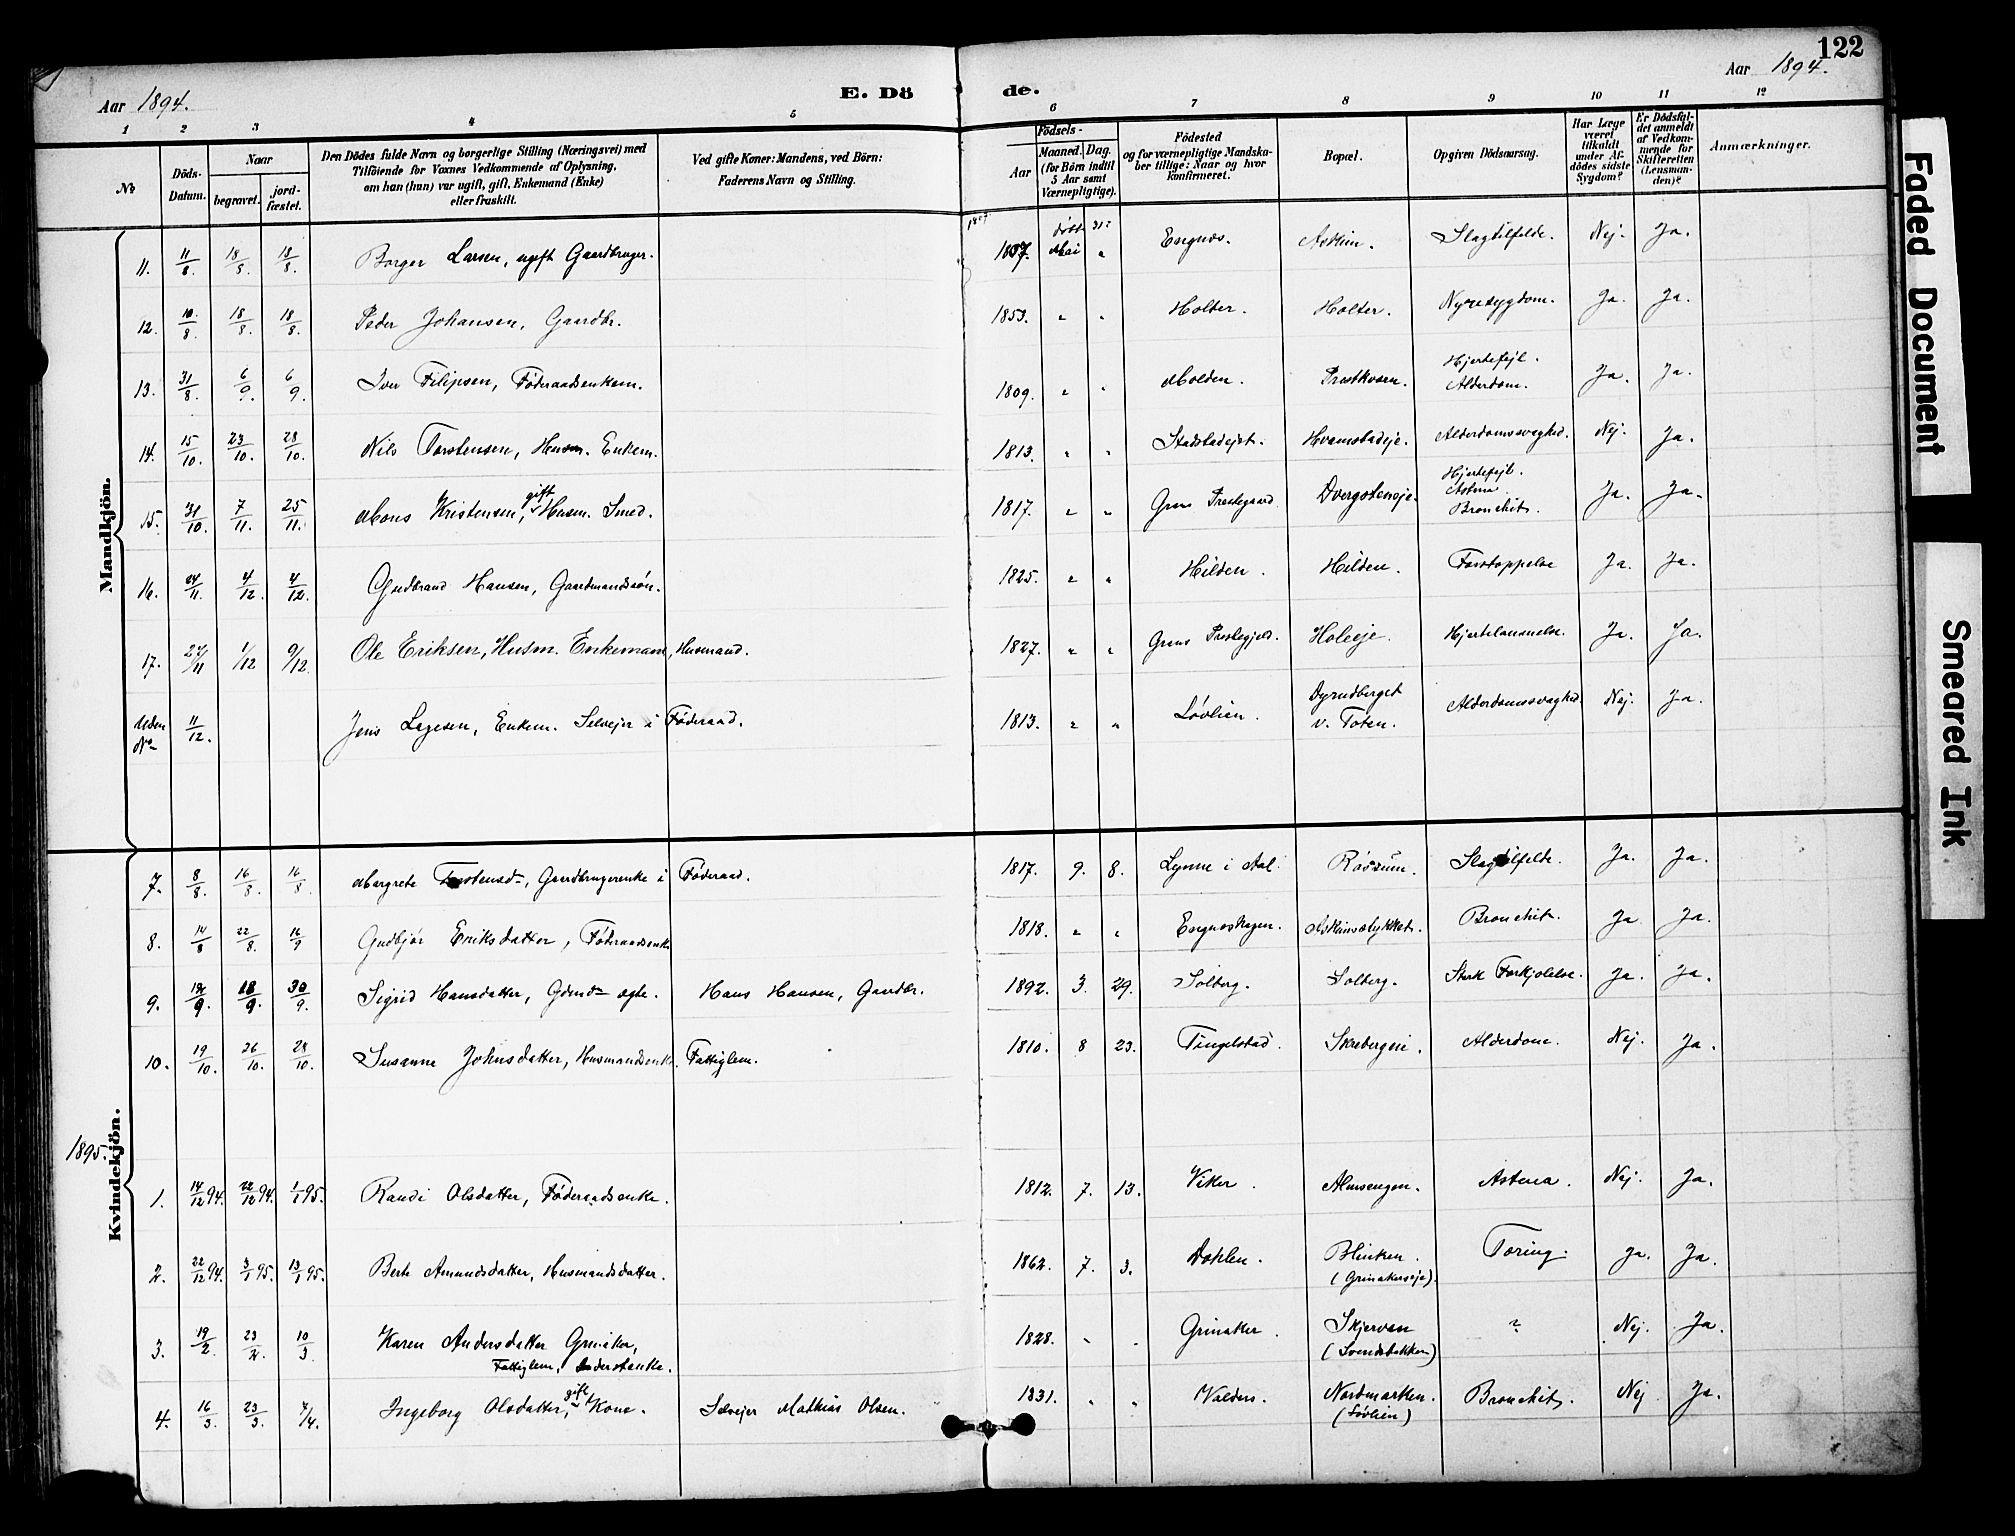 122
Aar 1894.
E. Dö de.
Aar 1894.
1 2 3 4 5 6 7 8 9 10 11 12
No
Döds-Datum.
Naar
begravet.
jord-fæstet.
Den Dödes fulde Navn og borgerlige Stilling (Næringsvei) med
Tilföiende for Voxnes Vedkommende af Oplysning,
om han (hun) var ugift, gift, Enkemand (Enke)
eller fraskilt.
Ved gifte Koner: Mandens, ved Börn:
Faderens Navn og Stilling.
Födsels-
Aar
Maaned. Dag.
(for Börn indtil
5 Aar samt
Værnepligtige).
Födested
og for værnepligtige Mandska-
ber tillige: Naar og hvor
konfirmeret.
Bopæl.
Opgiven Dödsaarsag.
Har Læge
været
tilkaldt
under Af-
dödes sidste
Sygdom?
Er Dödsfal-
det anmeldt
af Vedkom-
mende for
Skifteretten
(Lensman-
den)?
Anmærkninger.
Mandkjön.
11. 11/8 18/8. 18/8. Borger Larsen, ugift Gaardbruger. 1837. døbt Mai 31 " Engnæs. Askim. Slagtilfelde. Nej. Ja.
12. 10/8 18/8. 18/8. Peder Johansen, Gaardbr. 1853. " " Holter. Holter. Nyresygdom. Ja. Ja.
13. 31/8. 6/9. 6/9. Iver Filipsen, Føderaadsenkem. 1809. " " Molden. Præstkvern. Hjertefejl. Alderdom. Ja. Ja.
14. 15/10. 23/10. 28/10. Nils Torstensen, Husm. Enkem. 1813. " " Stadstadejet. Hvamstadeje. Alderdomssvaghed. Nej. Ja.
15. 31/10. 7/11. 25/11. Mons Kristensen, gift Husm. Smed. 1817. " " Grans Prestegaard. Dvergsteneje. Hjertefejl. Astma. Bronchit. Ja. Ja.
16. 24/11. 4/12. 4/12. Gudbrand Hansen, Gaardmandssøn. 1825. " " Hilden. Hilden. Forstoppelse Ja. Ja.
17. 27/11 1/12 9/12. Ole Eriksen, Husm. Enkemand, Husmand. 1827. " " Grans Prestegjeld. Holeeje. Hjertelammelse. Ja. Ja.
Uden No 11/12. Jens Lagesen, Enkem. Selvejer i Føderaad. 1813. " " Løvlien. Dyrudberget v. Toten. Alderdomssvaghed. Nej. Ja.
Kvindekjön.
7. 8/8. 16/8. 16/8. Margrete Torstensd., Gaardbrugerenke i Føderaad. 1817. 9. 8. Lynne i Aal Røssum. Slagtilfelde. Ja. Ja.
8. 14/8 22/8. 16/9 Gudbjør Eriksdatter, Føderaadsenke 1818. " " Engneshagen. Askimsstykket. Bronchit. Ja Ja.
9. 12/9. 18/9. 30/9. Sigrid Hansdatter, Gdmd. egte. Hans Hansen, Gaardbr. 1892. 3. 29. Solberg. Solberg. Sterk Forkjølelse. Ja. Ja.
10. 19/10. 26/10. 28/10. Susanne Johnsdatter, Husmandsenke. Fattiglem. 1810. 8 23. Tingelstad. Skrebergeie. Alderdom. Nej. Ja.
1895.
1. 14/12 94. 22/12 94. 1/1 95. Randi Olsdatter, Føderaadsenke. 1812. 7. 13. Viker. Almsengen. Astma. Nej. Ja.
2. 22/12 94. 3/1 95. 13/1 95. Berte Amundsdatter, Husmandsdatter. 1862. 7. 3. Dæhlen. Blinken. (Grinakerseje). Tæring. Ja. Ja.
3. 19/2. 23/2. 10/3. Karen Andersdatter Grinaker, Fattiglem, Inderstenke. 1828. " " Grinaker. Skjervan (Svendsbakken) ? Nej. Ja.
4. 16/3 23/3. 7/4. Ingeborg Olsdatter, gift Kone. Selvejer Mathias Olsen. 1831. " " Valders. Nordmarken. (Løvlien) Bronchit. Nej Ja.
Faded Document
Smeared Ink